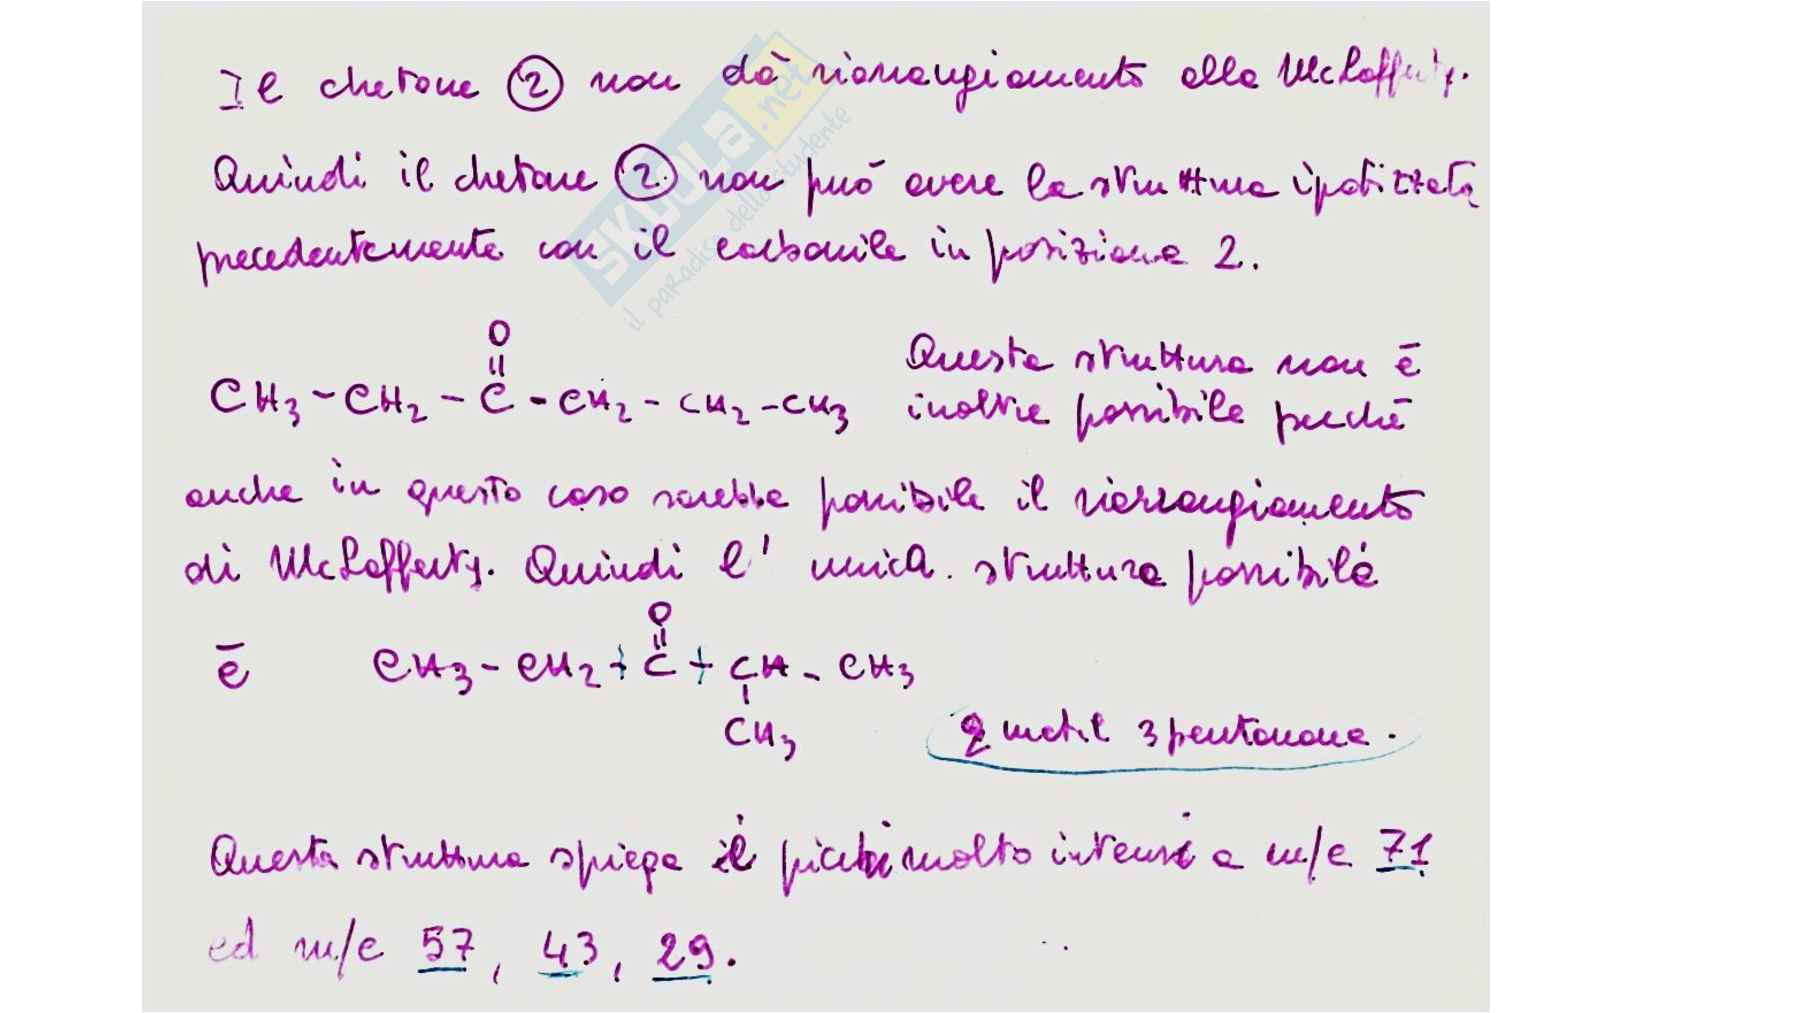 Il chetone ② non dà riarrangiamento alla McLafferty.
Quindi il chetone ② non può avere la struttura ipotizzata
precedentemente con il carbonile in posizione 2.
O
||
CH3-CH2-C-CH2-CH2-CH3
Questa struttura non è
inoltre possibile perché
anche in questo caso sarebbe possibile il riarrangiamento
di McLafferty. Quindi l'unica struttura possibile
O
||
è CH3-CH2+C+CH-CH3
|
CH3
2 metil 3 pentanone.
Questa struttura spiega i picchi molto intensi a m/e 71
ed m/e 57, 43, 29.
SKUOLA.net
il paradiso dello studente